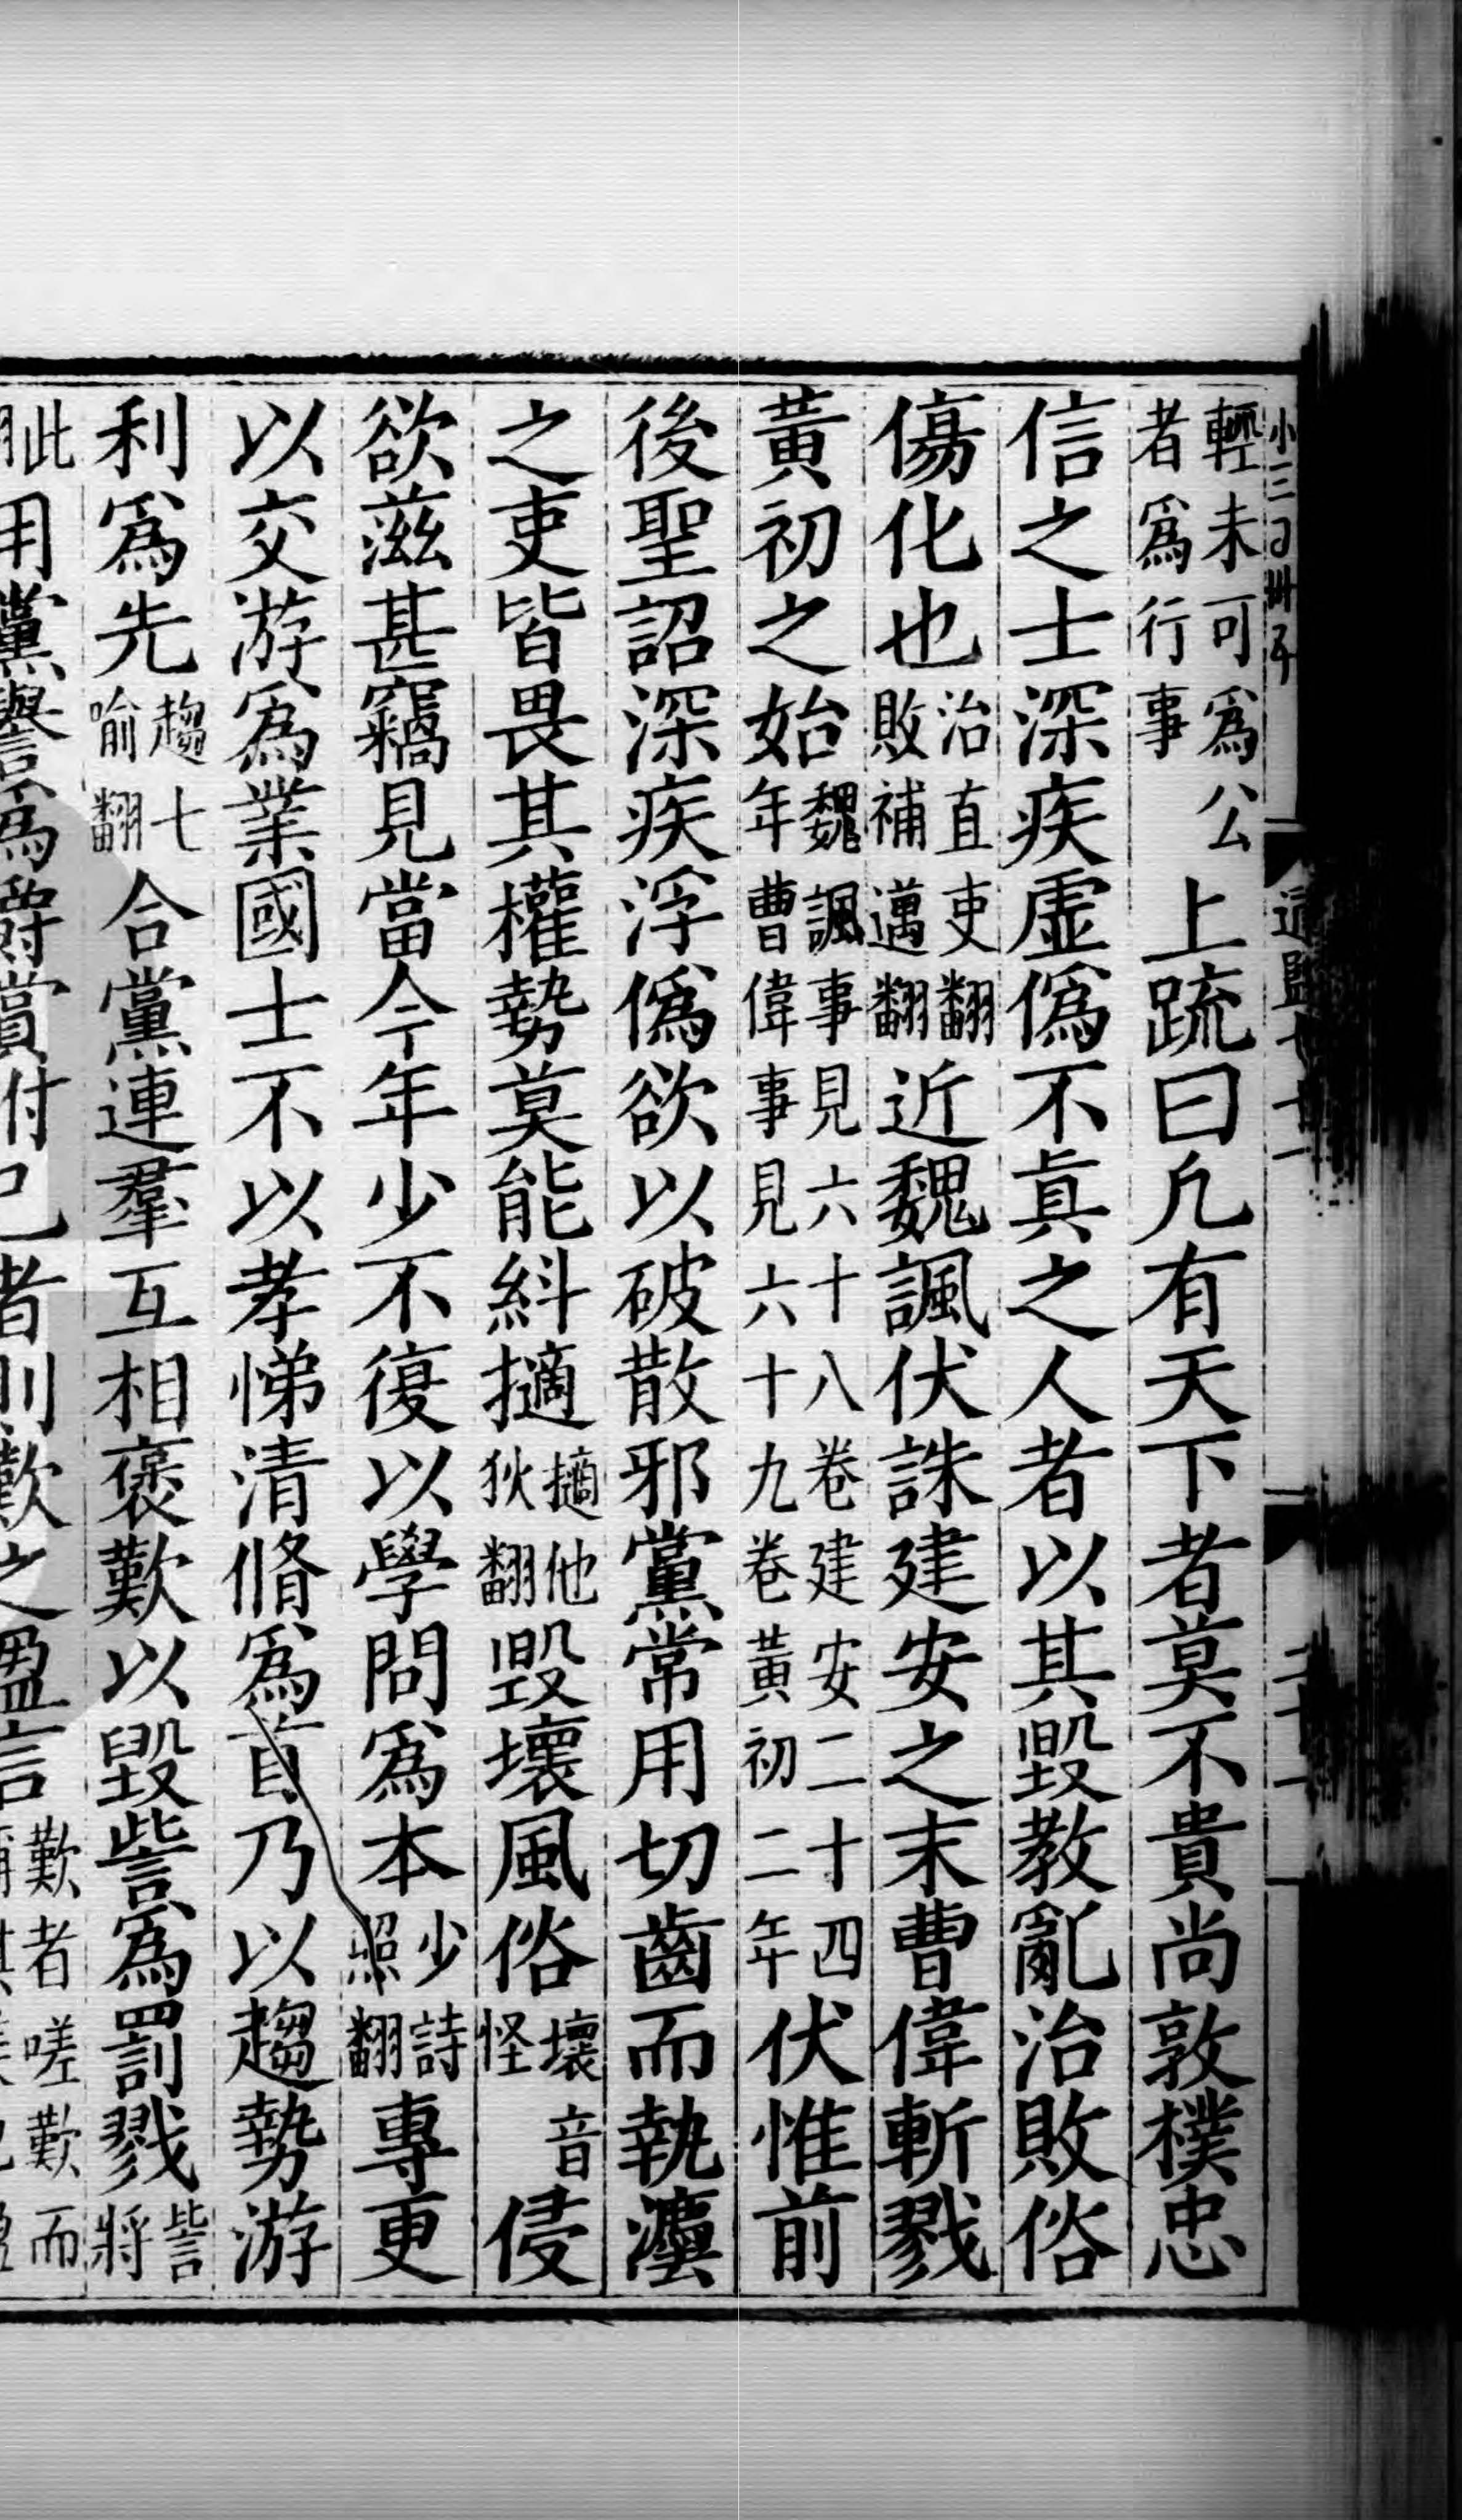 輕未可爲公者爲行事上疏曰凡有天下者莫不貴尚敦樸忠
信之士深疾虛僞不眞之人者以其毀教亂治敗俗
傷化也治直吏翻敗補邁翻近魏諷伏誅建安之末曹偉斬戮
黃初之始魏諷事見六十八卷建安二十四年曹偉事見六十九卷黃初二年伏惟前
後聖詔深疾浮僞欲以破散邪黨常用切齒而執灋
之吏皆畏其權勢莫能糾擿擿他狄翻毀壞風俗壞音怪侵
欲滋甚竊見當今年少不復以學問爲本少詩照翻專更
以交游爲業國士不以孝悌清脩爲首乃以趨勢游
利爲先趨七喻翻合黨連羣互相褒歎以毀訾爲罰戮訾將
此用黨譽爲爵賞付己者則歎之盈言歎者嗟歎而